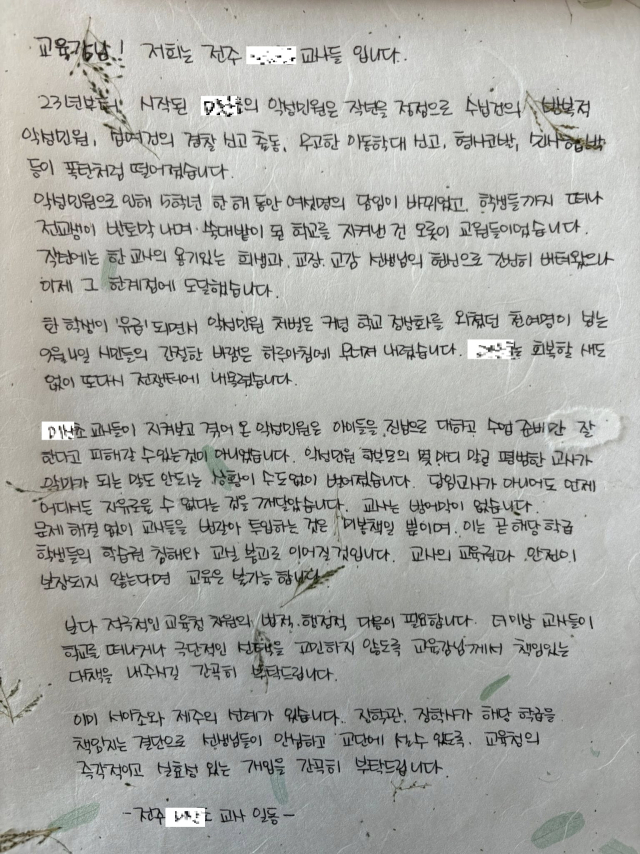 교육감님! 저희는 전주 교사들 입니다.
23년부터 시작된 의 악성민원은 작년을 정점으로 수십건의 반복적
악성민원, 십여건의 경찰 신고 출동, 무고한 아동학대 신고, 형사고발, 민사협박
등이 폭탄처럼 떨어졌습니다.
악성민원으로 인해 5학년 한 해 동안 여섯명의 담임이 바뀌었고, 학생들까지 떠나
전교생이 반토막 나며 쑥대밭이 된 학교를 지켜낸 건 오롯이 교원들이었습니다.
작년에는 한 교사의 용기있는 희생과 교장, 교감 선생님의 헌신으로 간신히 버텨왔으나
이제 그 한계점에 도달했습니다.
한 학생이 '유급'되면서 악성민원 처벌은 커녕 학교 정상화를 외쳤던 천여명이 넘는
9월 4일 시민들의 간절한 바람은 하루아침에 무너져 내렸습니다. 는 회복할 새도
없이 또다시 전쟁터에 내몰렸습니다.
교사들이 지켜보고 겪어 온 악성민원은 아이들을 진심으로 대하고 수업 준비만 잘
한다고 피해갈 수 있는것이 아니었습니다. 악성민원 학부모의 몇 마디 말로 평범한 교사가
악마가 되는 말도 안되는 상황이 수도없이 벌어졌습니다. 담임교사가 아니어도 언제
어디서든 자유로울 수 없다는 것을 깨달았습니다. 교사는 방어막이 없습니다.
문제 해결 없이 교사들을 번갈아 투입하는 것은 미봉책일 뿐이며, 이는 곧 해당 학급
학생들의 학습권 침해와 교실 붕괴로 이어질 것입니다. 교사의 교육권과 안전이
보장되지 않는다면 교육은 불가능합니다.
보다 적극적인 교육청 차원의 법적·행정적 대응이 필요합니다. 더이상 교사들이
학교를 떠나거나 극단적인 선택을 고민하지 않도록 교육감님께서 책임있는
대책을 내주시길 간곡히 부탁드립니다.
이미 서이초와 제주의 선례가 있습니다. 장학관, 장학사가 해당 학급을
책임지는 결단으로 선생님들이 안심하고 교단에 설 수 있도록 교육청의
즉각적이고 실효성 있는 개입을 간곡히 부탁드립니다.
- 전주 교사 일동 -